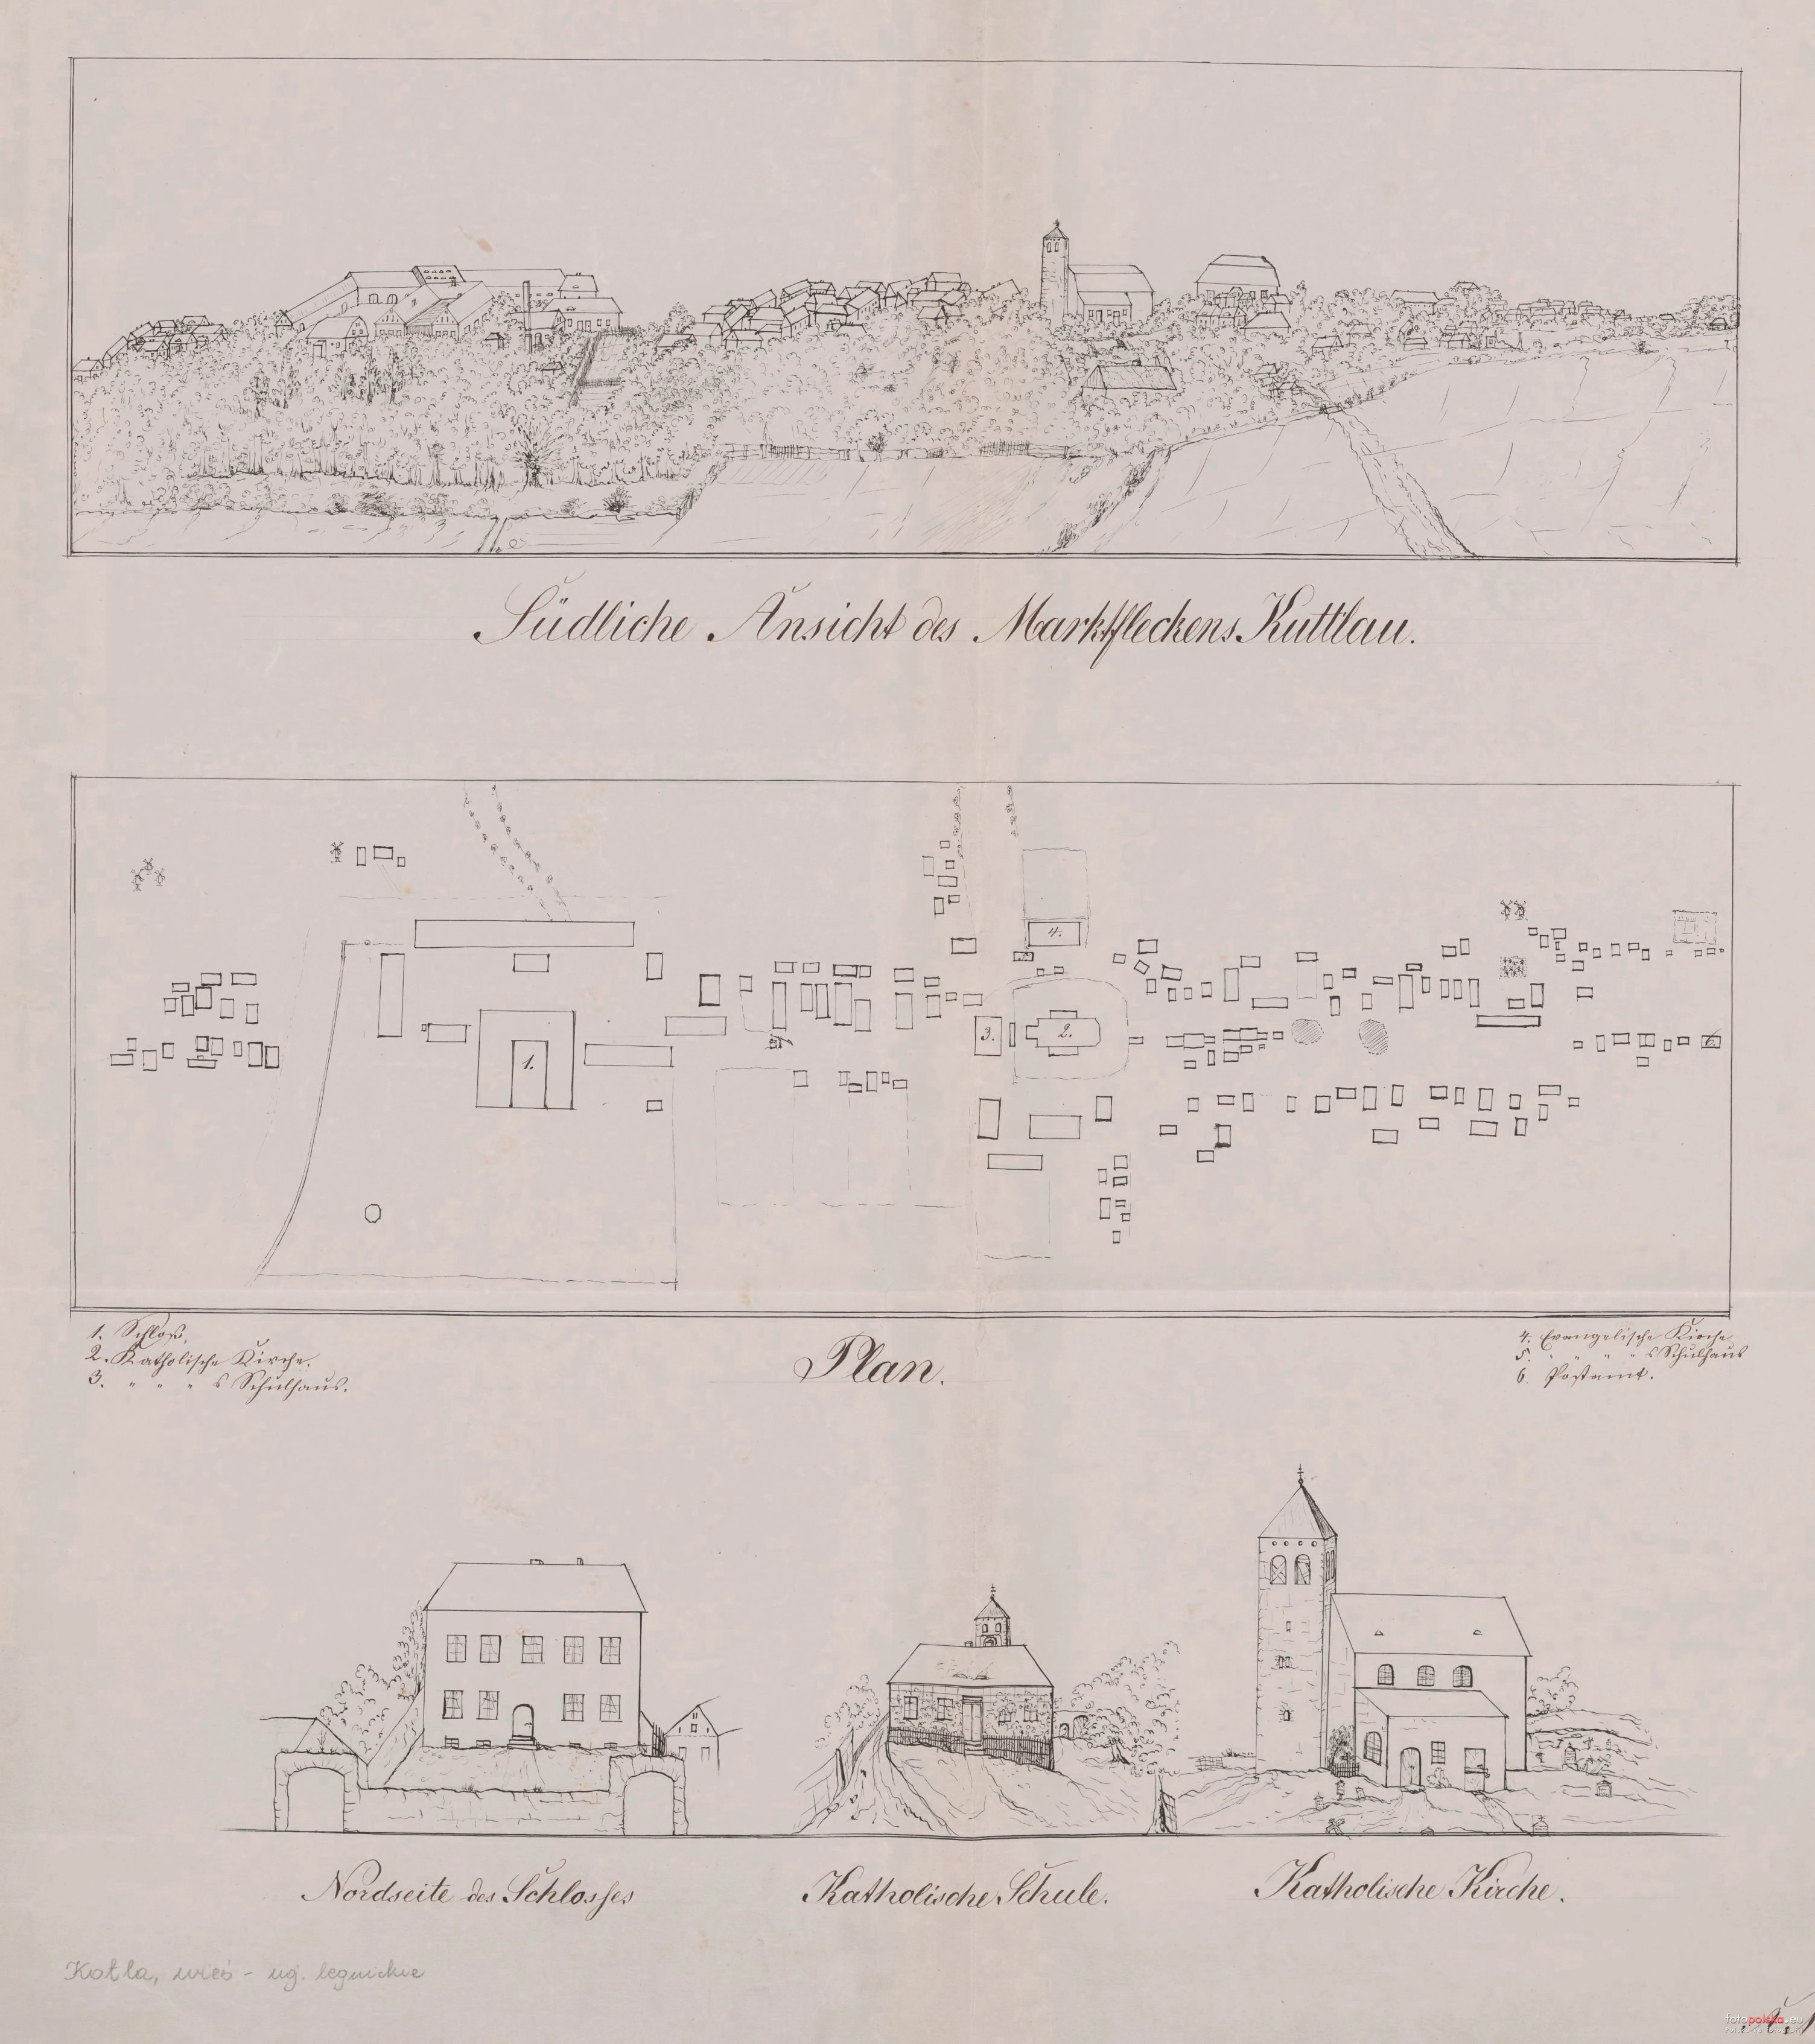 Südliche Ansicht des Marktfleckens Kuttlau.
1.
2.
3.
4.
6.
1. Schloß,
2. Katholische Kirche.
3. " " " s Schulhaus.
Plan.
4. Evangelische Kirche
5. " " " " s Schulhaus
6. Postamt.
Nordseite des Schlosses
Katholische Schule.
Katholische Kirche.
Kotla, wieś - ug. legnickie
fotopolska.eu